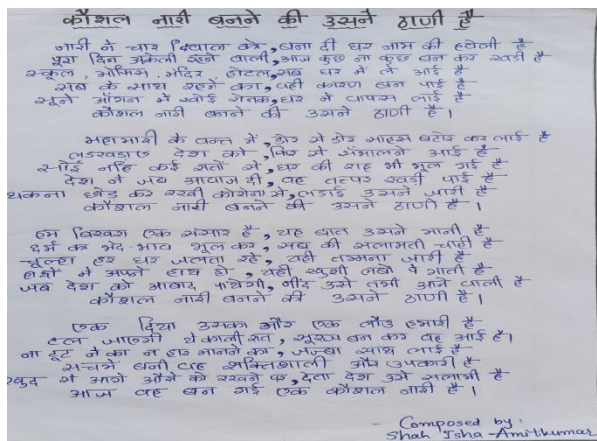 कौशल नारी बनने की उसने ठाणी है
नारी ने चार दिवाल को, बना दी घर नाम की हवेली है
पूरा दिन अकेली रहने वाली, आज कुछ ना कुछ बन कर खडी है
स्कूल, ऑफिस, मंदिर, होटल, सब घर में ले आई है
सब के साथ रहने का, वही कारण बन पाई है
सूने आँगन में खोई रौनक, घर में वापस लाई है
कौशल नारी बनने की उसने ठाणी है।
महामारी के वक्त में, ढेर से ढेर साहस बटोर कर लाई है
लडखडाए देश को, फिर से संभालने आई है
सोई नहि कई रातों से, घर की राह भी भूल गई है
देश ने जब आवाज दी, वह तत्पर खडी पाई है
थकना छोड कर रखी कोरोना से, लडाई उसने जारी है
कौशल नारी बनने की उसने ठाणी है।
हम बिखरा एक संसार है, यह बात उसने मानी है
धर्म का भेद-भाव भूल कर, सब की सलामती चाही है
चूल्हा हर घर जलता रहे, यही तमन्ना जारी है
हाथों में अपने हाथ हो, यही खुशी लबो पे गाती है
जब देश को आबाद पायेगी, नींद उसे तभी आने वाली है
कौशल नारी बनने की उसने ठाणी है।
एक दिया उसका और एक लौ हमारी है
टल जाएगी ये काली रात, सूरज बन कर वह आई है।
ना टूटने का न हार मानने का, जज्बा साथ लाई है
सचमें बनी वह शक्तिशाली और उपकारी है
खुद से आगे औरो को रखने पर, देता देश उसे सलामी है
आज वह बन गई एक कौशल नारी है।
Composed by:
Shah Isha-Amitkumar